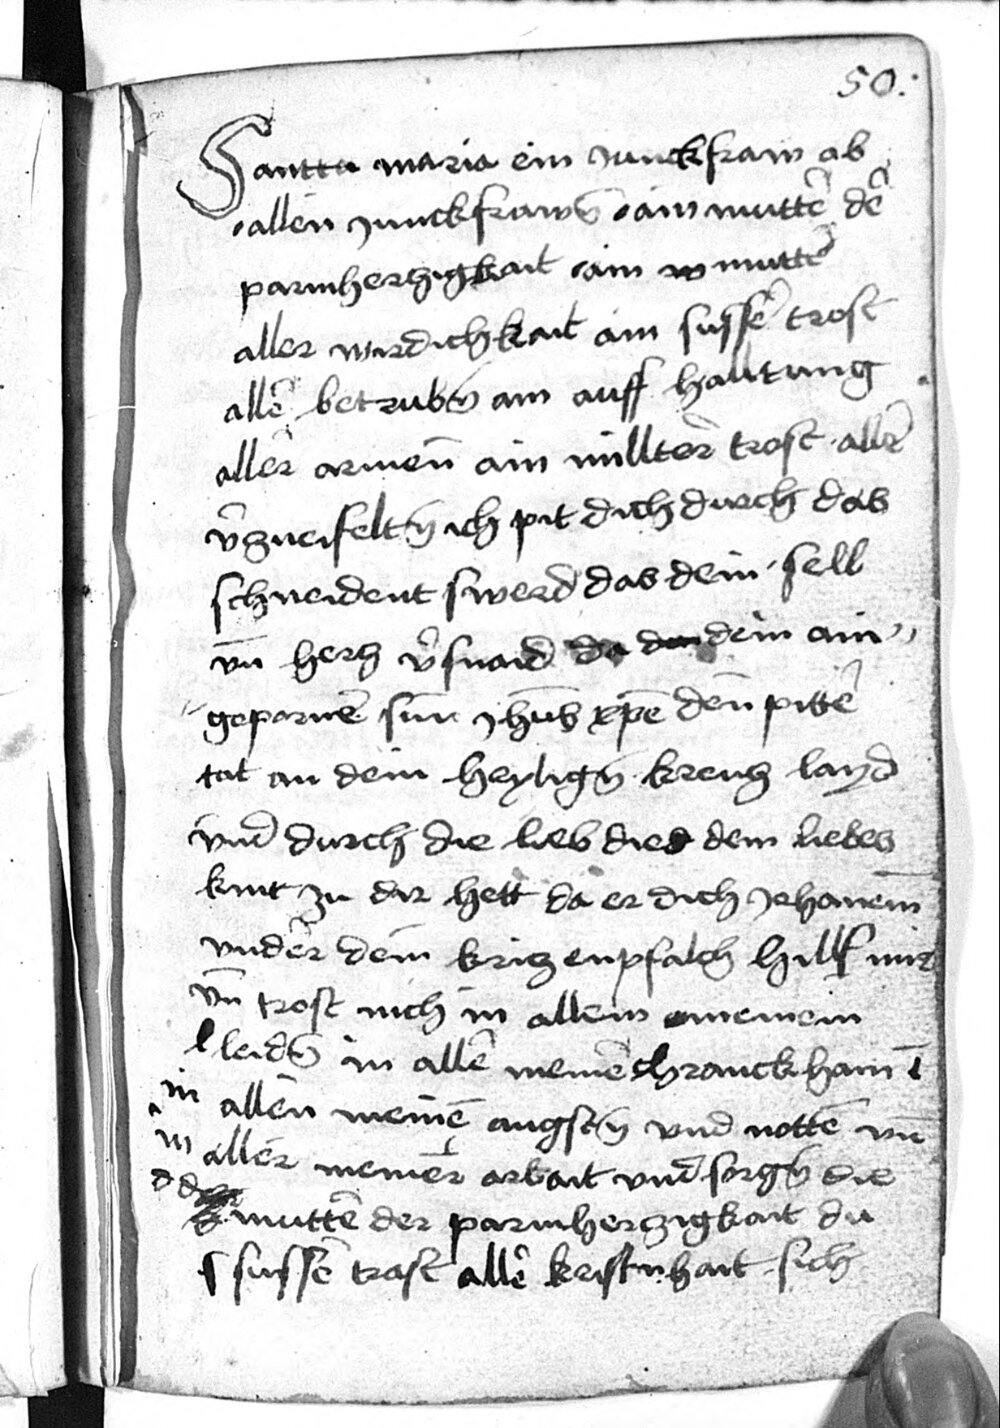 50.
Santta maria ein junckfraw ob
allen junckfrawn̄ ain muttē dē
parmherczigkait ain muttē
aller wirdichkait ain sussē trost
allē betrubn̄ ain auff halltung
aller armen̄ ain millter trost allr̄
v̄zueifeltn̄ ich pit dich durch das
schneident swerd das dein sell
vn̄ hercz v̄snaid da dein ain
geparnē sun jhūs xp̄e den̄ pittē
tat an dem heylign̄ kreucz layd
vnd durch die lieb die dein liebes
kint zu dir hett da er dich Johanem̄
vnder dem kricz enpfalch hillf mir
vn̄ trost mich in allem meinem
leidn̄ in allē meinē chranckhait
in allen meinē angstn̄ vnd nottē vn̄
in aller meiner arbait vnd sorgn̄ die
muttē der parmherczigkait du
sussē trost allē kristnhait sich